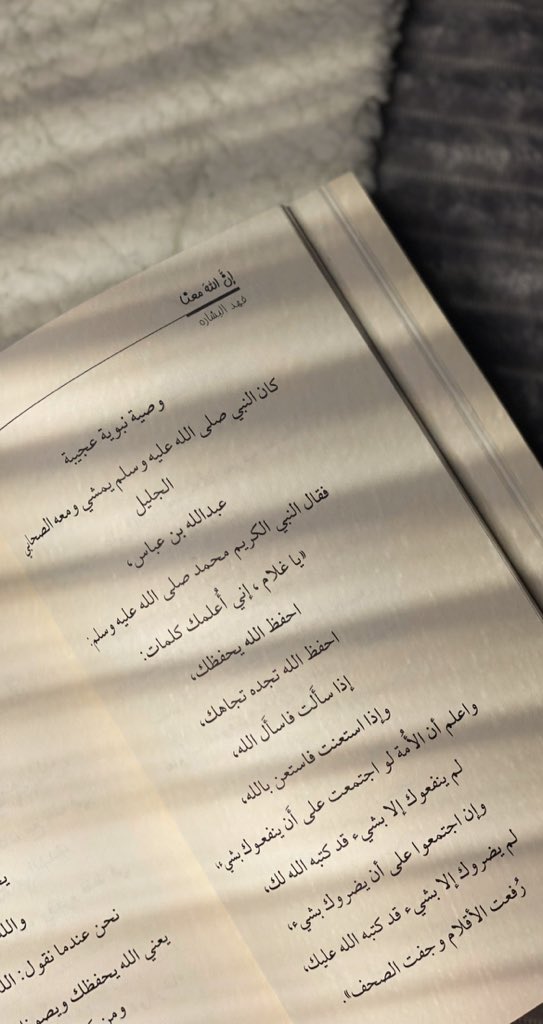 إنَّ اللهَ معنا
فهد البشاره
وصية نبوية عجيبة
كان النبي صلى الله عليه وسلم يمشي ومعه الصحابي
الجليل
عبدالله بن عباس،
فقال النبي الكريم محمد صلى الله عليه وسلم:
«يا غلام، إني أُعلمك كلمات:
احفظ الله يحفظك،
احفظ الله تجده تجاهك،
إذا سألت فاسأل الله،
وإذا استعنت فاستعن بالله،
واعلم أن الأُمة لو اجتمعت على أن ينفعوك بشيء،
لم ينفعوك إلا بشيء قد كتبه الله لك،
وإن اجتمعوا على أن يضروك بشيء،
لم يضروك إلا بشيء قد كتبه الله عليك،
رُفعت الأقلام وجفت الصحف».
نحن عندما نقول:
يعني الله يحفظك